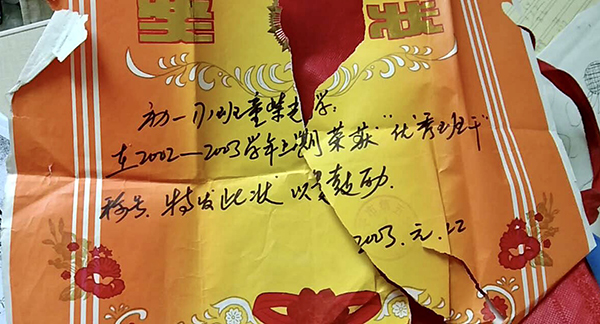 奖状
初一 班童 同学:
在2002—2003学年上期荣获"优秀班干"
称号.特发此状 以资鼓励.
2003.元.12